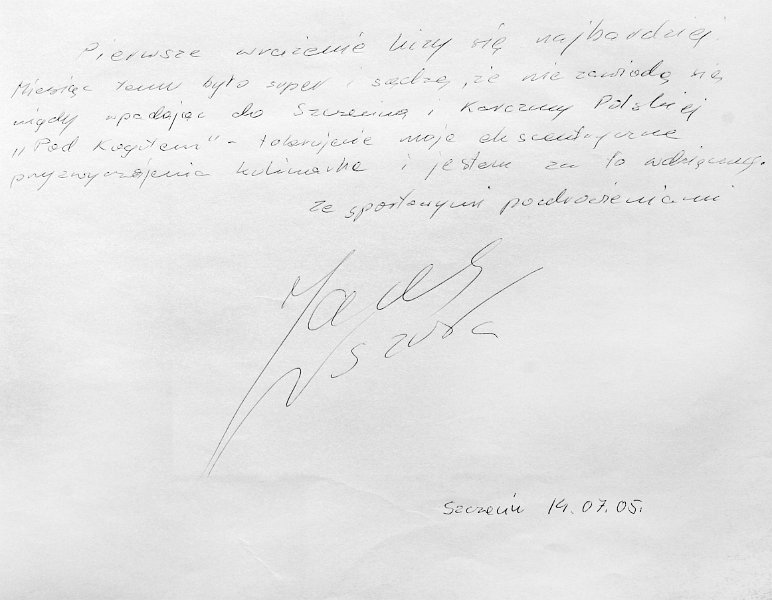 Pierwsze wrażenie liczy się najbardziej.
Miesiąc temu było super i sądzę, że nie zawiodą się
nigdy wpadając do Szczecina i Karczmy Polskiej
„Pod Kogutem" - tolerujecie moje ekscentryczne
przyzwyczajenia kulinarne i jestem za to wdzięczny.
Ze sportowymi pozdrowieniami
Jacek
Szczecin 14.07.05.